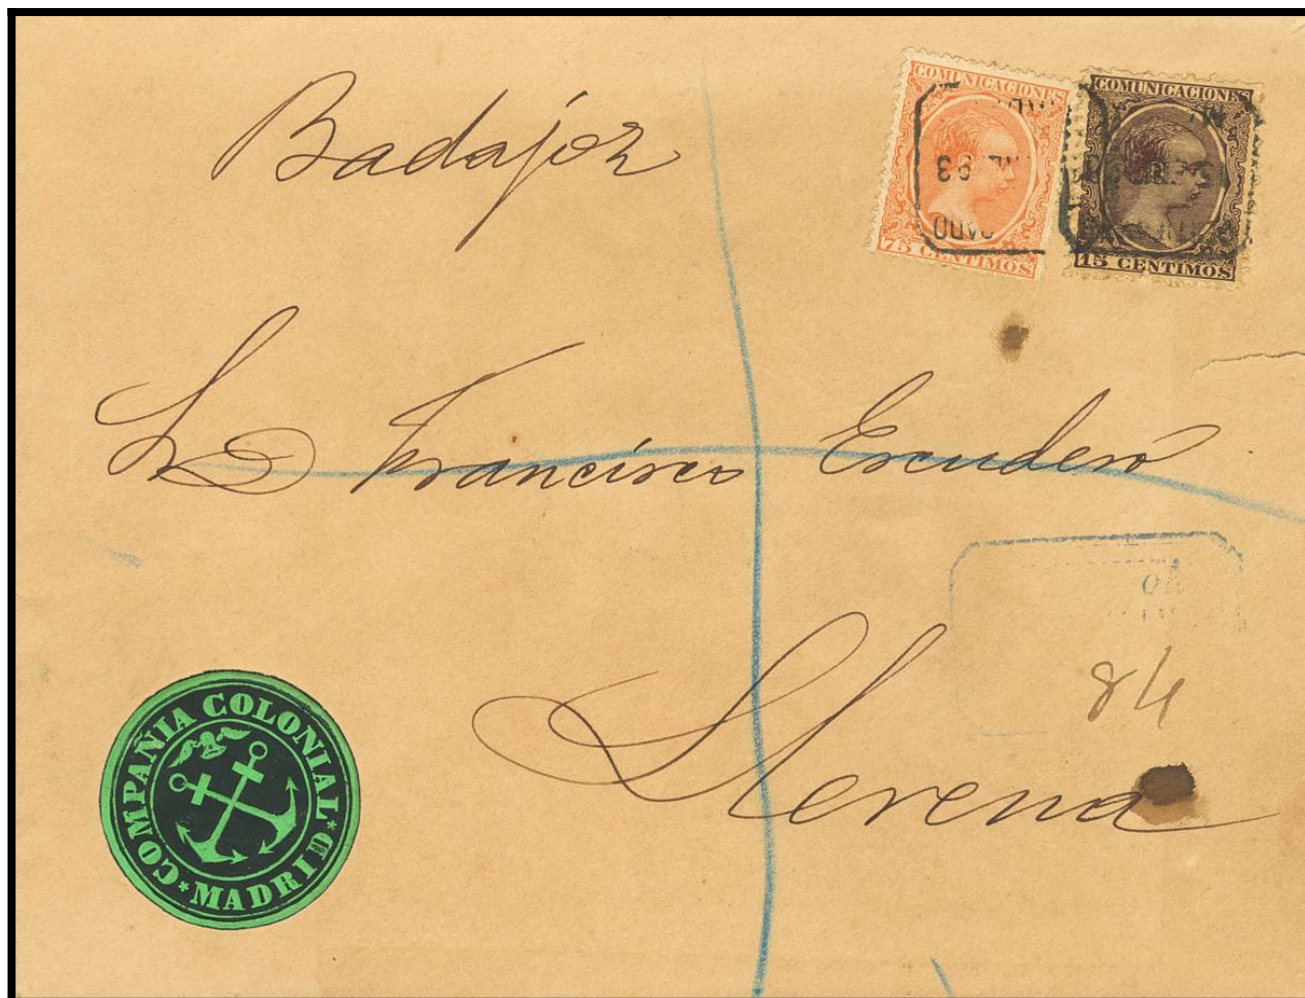 Badajoz
COMUNICACIONES
75 CENTIMOS
COMUNICACIONES
15 CENTIMOS
93
Sr D Francisco Escudero
84
Llerena
COMPAÑIA COLONIAL
MADRID